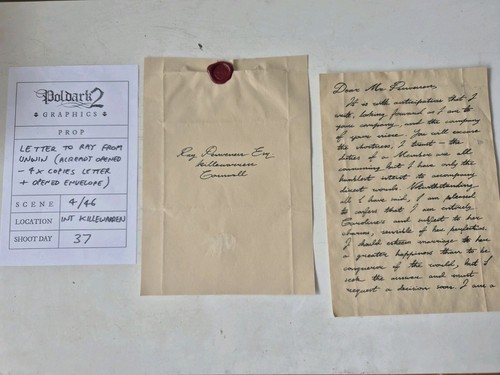 Poldark 2
GRAPHICS
PROP
LETTER TO RAY FROM
UNWIN (ALREADY OPENED
- 4 x COPIES LETTER
+ OPENED ENVELOPE)
SCENE 4/46
LOCATION INT KILLEWARREN
SHOOT DAY 37
Ray Penvenen Esq
Killewarren
Cornwall
Dear Mr Penvenen,
It is with anticipation that I
write, looking forward as I am to
your company, and the company
of your niece. You will excuse
the shortness, I trust - the
duties of a Member are all
consuming but I have only the
humblest intent to accompany
direct words. Notwithstanding
all I have said, I am pleased
to confess that I am entirely
and subject to her
charms, sensible of her perfection.
I should esteem marriage to have
a greater happiness than to be
conqueror of the world, but I
seek the answer and must
request a decision soon. I am a